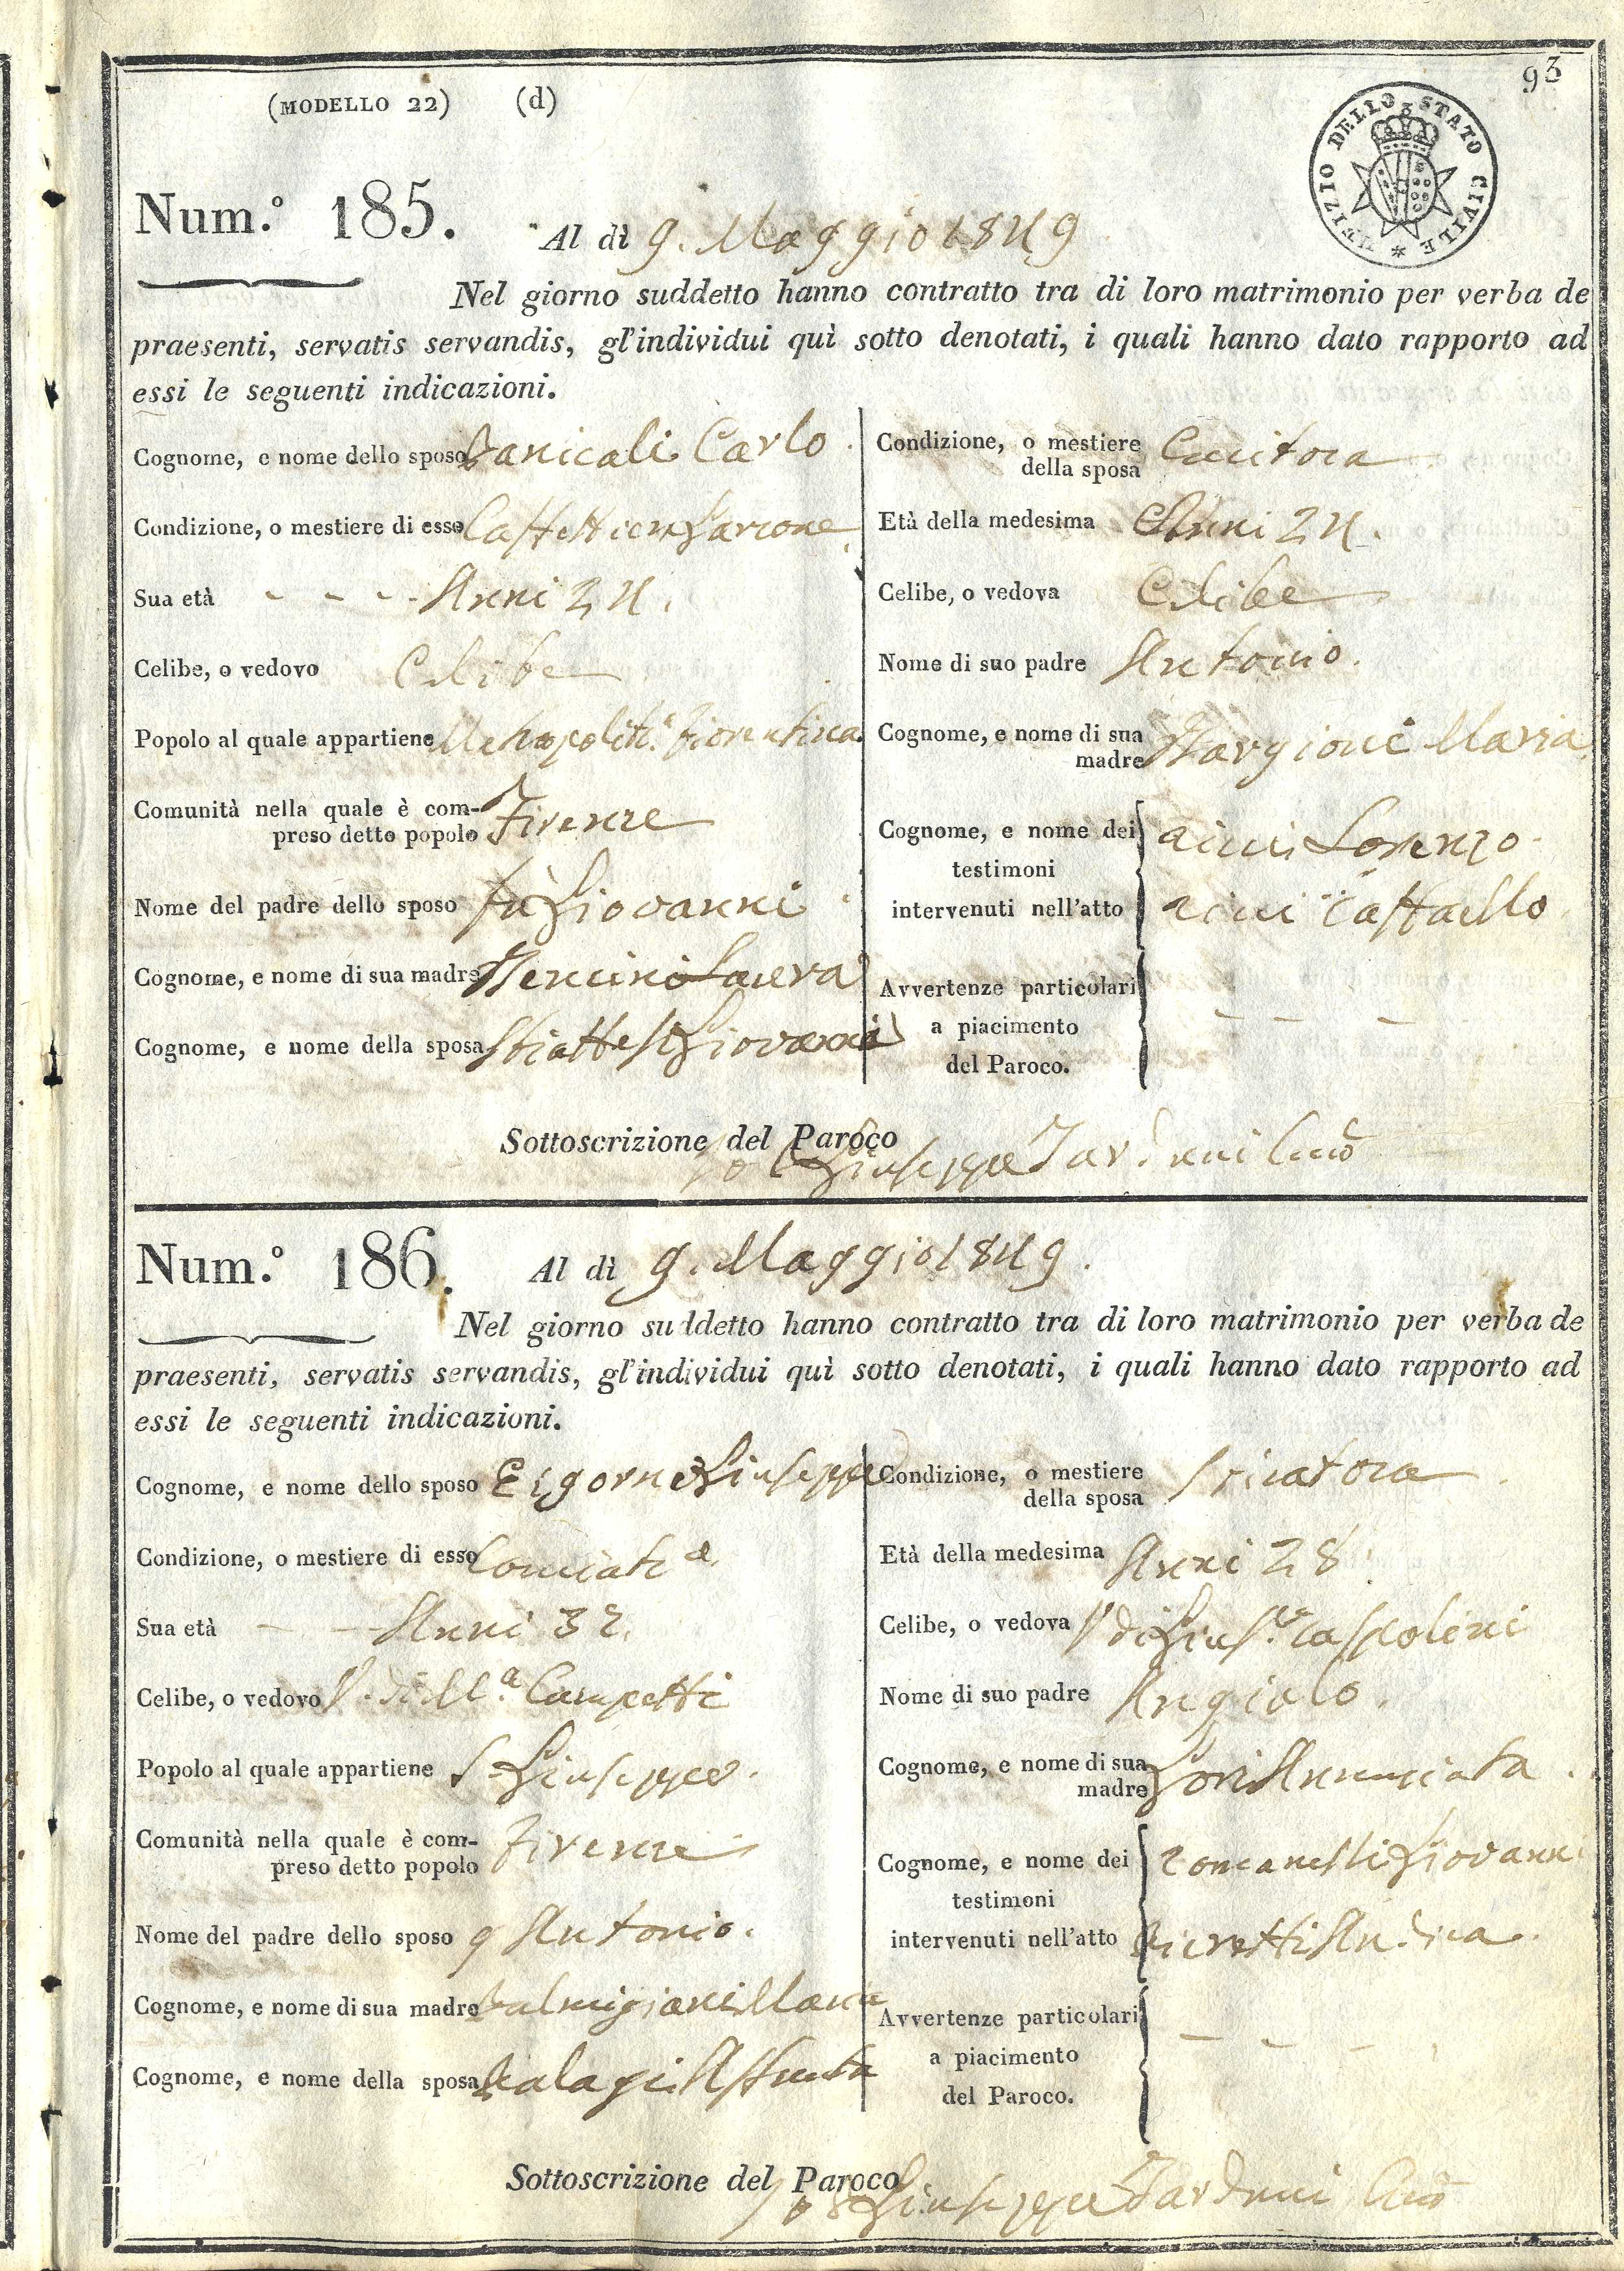 93
(MODELLO 22) (d)
UFIZIO DELLO STATO CIVILE *
Num.º 185. Al dì 9. Maggio 1849
Nel giorno suddetto hanno contratto tra di loro matrimonio per verba de
praesenti, servatis servandis, gl'individui quì sotto denotati, i quali hanno dato rapporto ad
essi le seguenti indicazioni.
Cognome, e nome dello sposo Panicali Carlo
Condizione, o mestiere di esso Caffettiere Garzone
Sua età - - - - Anni 24.
Celibe, o vedovo Celibe
Popolo al quale appartiene Metropolit.a Fiorentina
Comunità nella quale è com-
preso detto popolo Firenze
Nome del padre dello sposo fù Giovanni
Cognome, e nome di sua madre Laura
Cognome, e nome della sposa Giovanna
Condizione, o mestiere
della sposa Cucitora
Età della medesima Anni 24.
Celibe, o vedova Celibe
Nome di suo padre Antonio.
Cognome, e nome di sua
madre Targioni Maria
Cognome, e nome dei Lorenzo
testimoni
intervenuti nell'atto Raffaello
Avvertenze particolari
a piacimento - - -
del Paroco.
Sottoscrizione del Paroco
Io Giuseppe Tarduni
Num.º 186. Al dì 9. Maggio 1849.
Nel giorno suddetto hanno contratto tra di loro matrimonio per verba de
praesenti, servatis servandis, gl'individui quì sotto denotati, i quali hanno dato rapporto ad
essi le seguenti indicazioni.
Cognome, e nome dello sposo Giuseppe
Condizione, o mestiere di esso
Sua età - - Anni 32.
Celibe, o vedovo V. di M.a Campetti
Popolo al quale appartiene S. Giuseppe.
Comunità nella quale è com-
preso detto popolo Firenze
Nome del padre dello sposo q Antonio.
Cognome, e nome di sua madre Palmigiani Maria
Cognome, e nome della sposa Palagi Assunta
Condizione, o mestiere
della sposa
Età della medesima Anni 28.
Celibe, o vedova V. di Gius.e
Nome di suo padre Angiolo.
Cognome, e nome di sua
madre Gori Annunciata.
Cognome, e nome dei Romanelli Giovanni
testimoni
intervenuti nell'atto Pierotti Andrea.
Avvertenze particolari - - -
a piacimento
del Paroco.
Sottoscrizione del Paroco
Io Giuseppe Tarduni